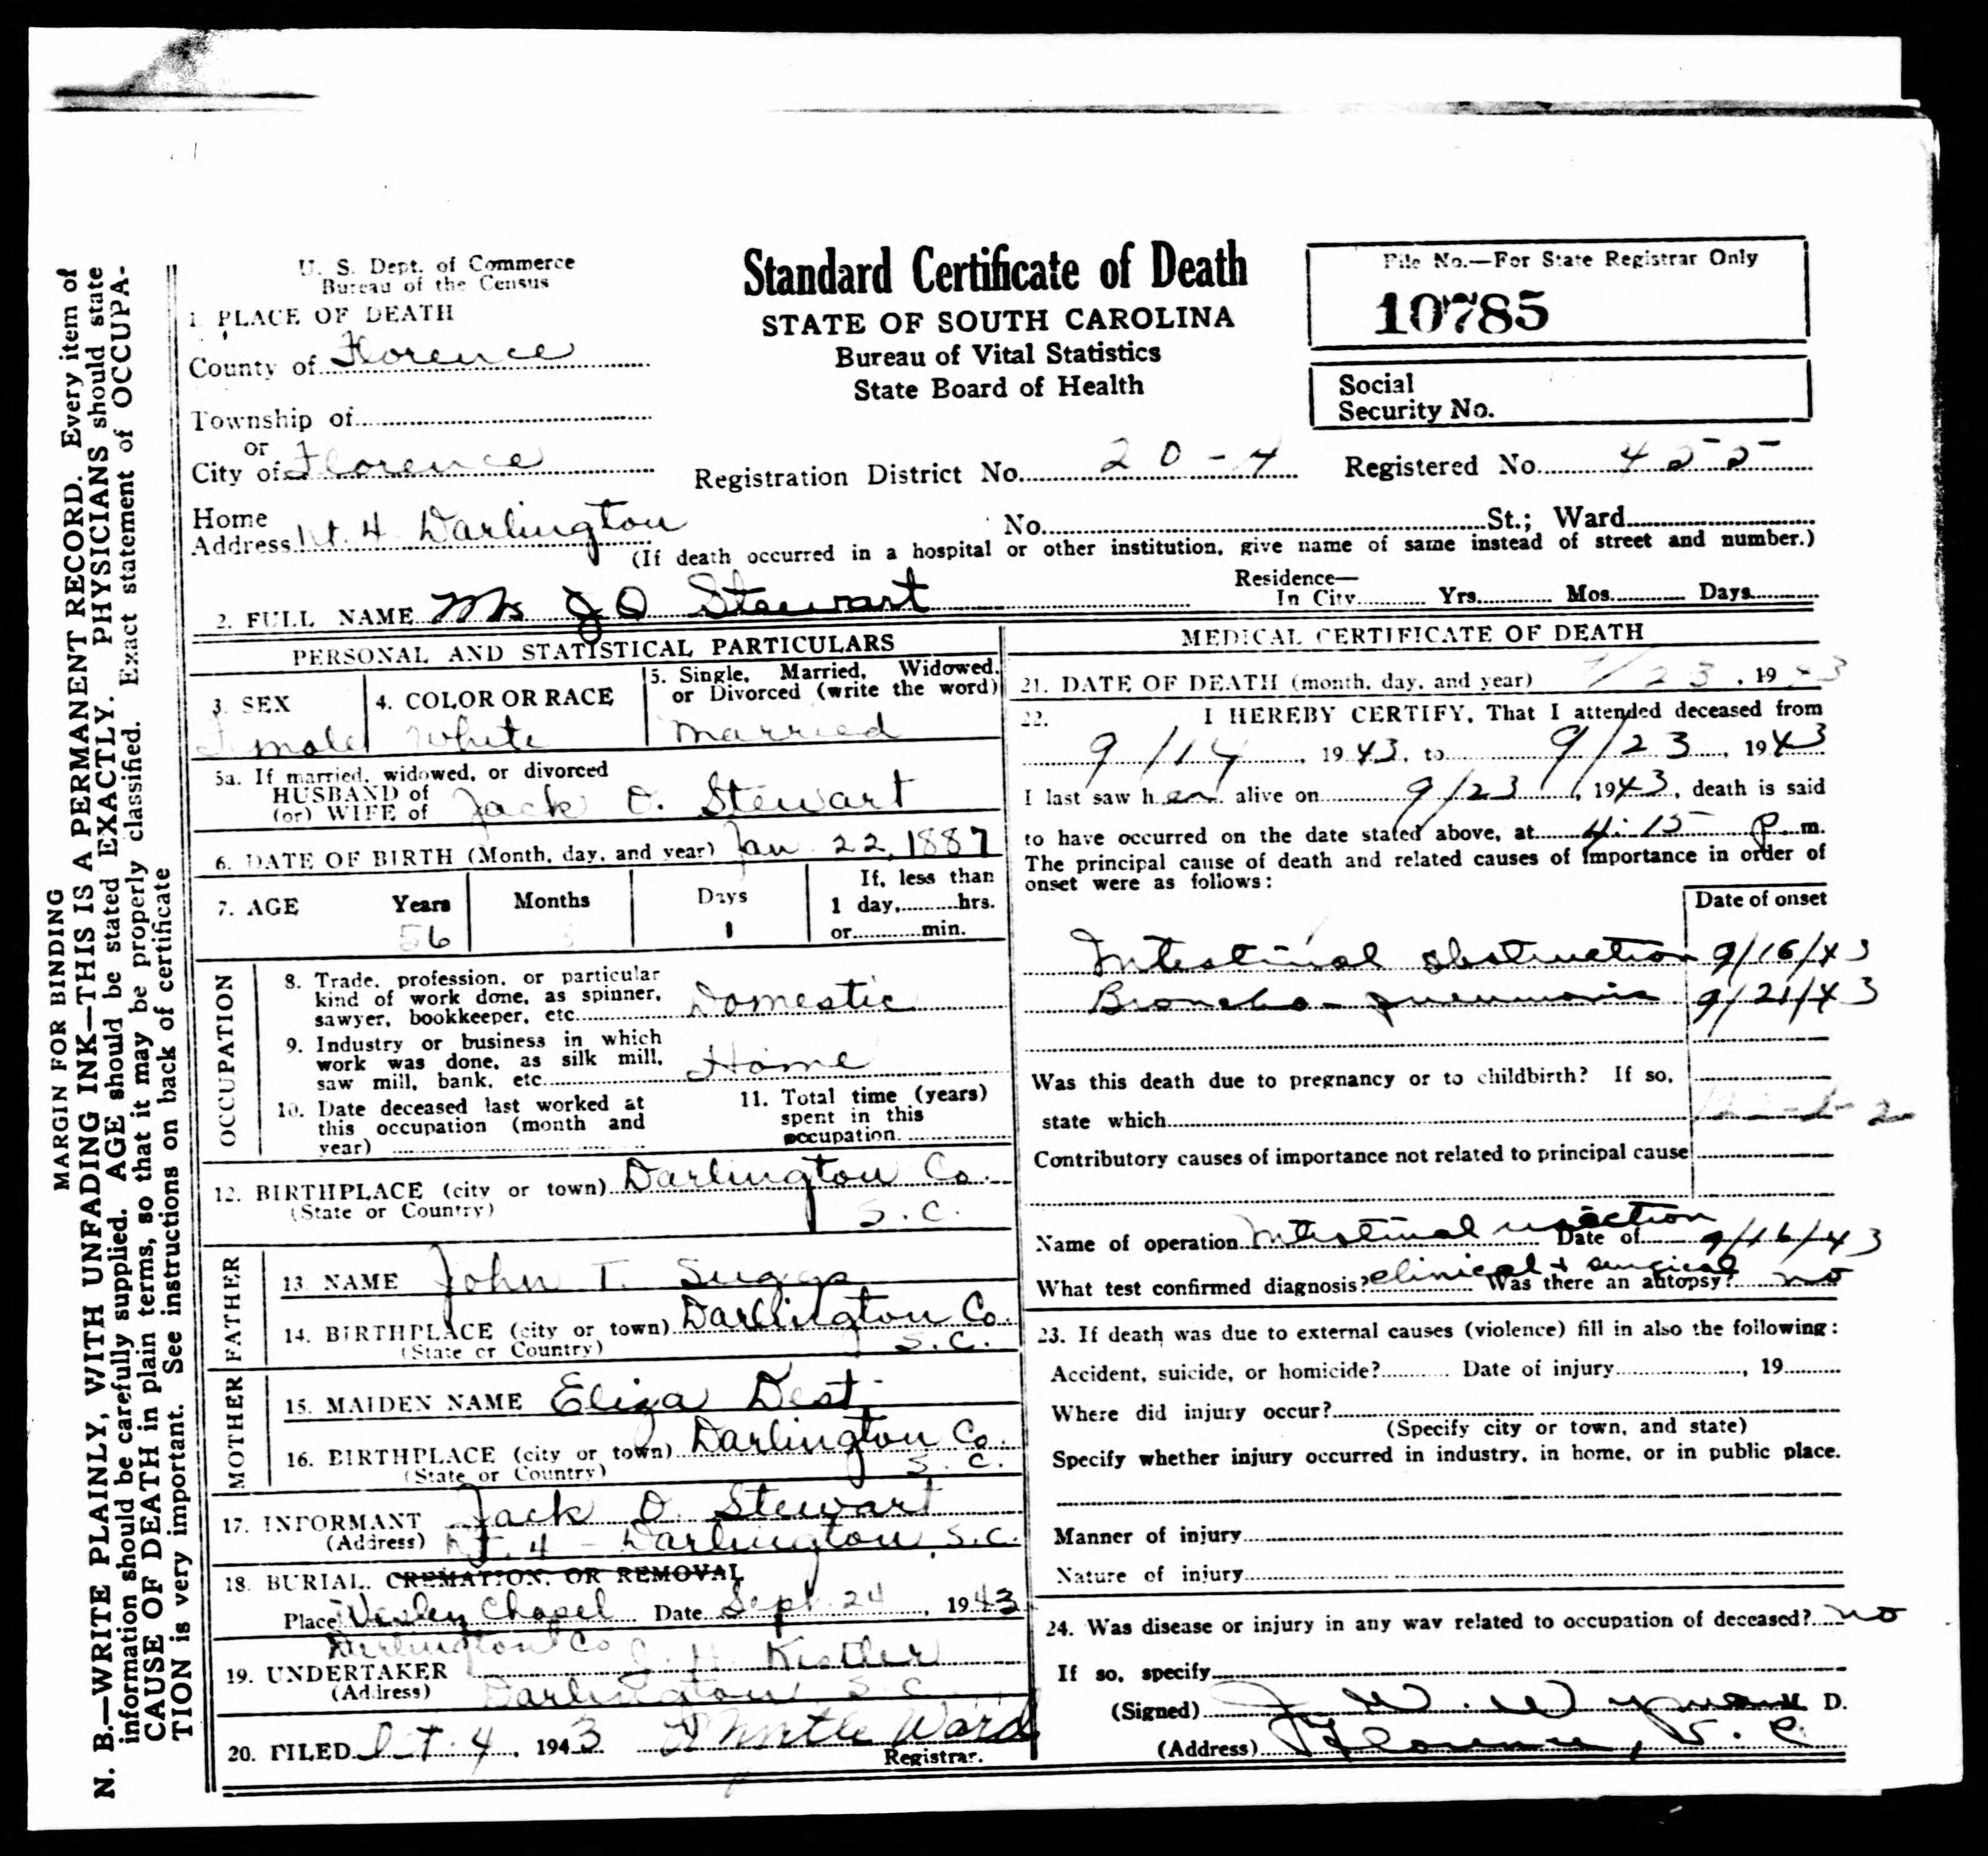 U. S. Dept. of Commerce
Bureau of the Census
1. PLACE OF DEATH
County of Florence
Township of
or
City of Florence
Home
Address Rt. 4 Darlington
Standard Certificate of Death
STATE OF SOUTH CAROLINA
Bureau of Vital Statistics
State Board of Health
File No.—For State Registrar Only
10785
Social
Security No.
Registration District No. 20-4
Registered No. 455
No. St.; Ward
(If death occurred in a hospital or other institution, give name of same instead of street and number.)
2. FULL NAME Mrs J O Stewart
Residence—
In City Yrs. Mos. Days
PERSONAL AND STATISTICAL PARTICULARS
3. SEX
Female
4. COLOR OR RACE
White
5. Single, Married, Widowed,
or Divorced (write the word)
Married
5a. If married, widowed, or divorced
HUSBAND of
(or) WIFE of Jack O. Stewart
6. DATE OF BIRTH (Month, day, and year) Jan 22, 1887
7. AGE Years Months Days
56 1
If, less than
1 day, hrs.
or min.
OCCUPATION
8. Trade, profession, or particular
kind of work done, as spinner,
sawyer, bookkeeper, etc. Domestic
9. Industry or business in which
work was done, as silk mill,
saw mill, bank, etc. Home
10. Date deceased last worked at
this occupation (month and
year)
11. Total time (years)
spent in this
occupation
12. BIRTHPLACE (city or town) Darlington Co.
(State or Country) S.C.
FATHER
13. NAME John T. Suggs
14. BIRTHPLACE (city or town) Darlington Co.
(State or Country) S.C.
MOTHER
15. MAIDEN NAME Eliza
16. BIRTHPLACE (city or town) Darlington Co.
(State or Country) S.C.
17. INFORMANT Jack O. Stewart
(Address) Rt. 4 - Darlington, S.C.
18. BURIAL, CREMATION, OR REMOVAL
Place Wesley Chapel Date Sept. 24, 1943
Darlington Co
19. UNDERTAKER J. H. Kistler
(Address) Darlington S C
20. FILED Oct. 4, 1943 Myrtle Ward
Registrar.
MEDICAL CERTIFICATE OF DEATH
21. DATE OF DEATH (month, day, and year) 9/23, 1943
22. I HEREBY CERTIFY, That I attended deceased from
9/14, 1943, to 9/23, 1943
I last saw her alive on 9/23, 1943, death is said
to have occurred on the date stated above, at 4:15 P. m.
The principal cause of death and related causes of importance in order of
onset were as follows:
Date of onset
Intestinal obstruction 9/16/43
Broncho-pneumonia 9/21/43
Was this death due to pregnancy or to childbirth? If so,
state which
Contributory causes of importance not related to principal cause
Name of operation Intestinal resection Date of 9/16/43
What test confirmed diagnosis? clinical & surgical Was there an autopsy? no
23. If death was due to external causes (violence) fill in also the following:
Accident, suicide, or homicide? Date of injury, 19
Where did injury occur?
(Specify city or town, and state)
Specify whether injury occurred in industry, in home, or in public place.
Manner of injury
Nature of injury
24. Was disease or injury in any way related to occupation of deceased? no
If so, specify
(Signed) J. W. Wyman M. D.
(Address) Florence, S. C.
MARGIN FOR BINDING
N. B.—WRITE PLAINLY, WITH UNFADING INK—THIS IS A PERMANENT RECORD. Every item of
information should be carefully supplied. AGE should be stated EXACTLY. PHYSICIANS should state
CAUSE OF DEATH in plain terms, so that it may be properly classified. Exact statement of OCCUPA-
TION is very important. See instructions on back of certificate